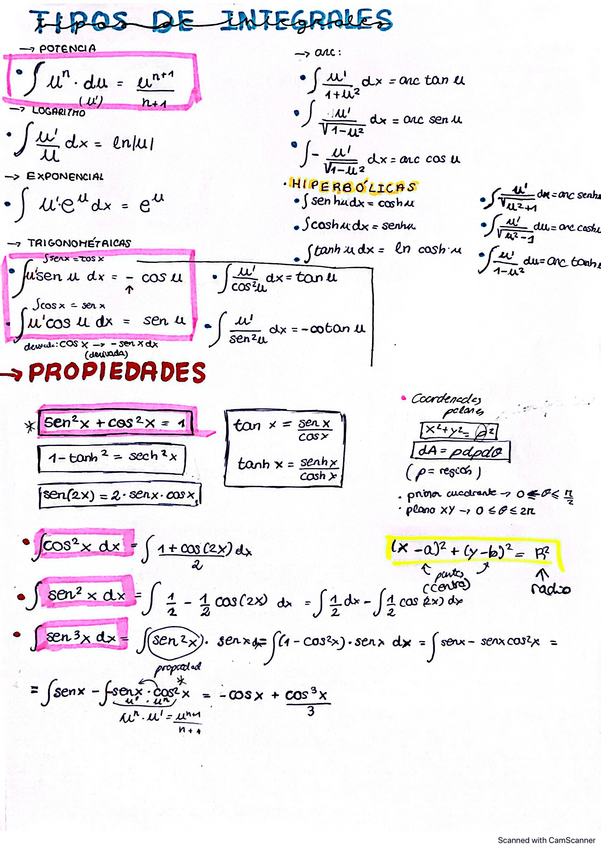 TIPOS DE INTEGRALES
→ POTENCIA
• ∫ uⁿ · du = uⁿ⁺¹/n+1
(u')
→ LOGARITMO
• ∫ u'/u dx = ln|u|
→ EXPONENCIAL
• ∫ u'eᵘ dx = eᵘ
→ TRIGONOMÉTRICAS
∫senx = cosx
• ∫u'sen u dx = - cos u
↑
∫cosx = senx
• ∫u'cos u dx = sen u
cosx → -senxdx
(derivada)
• ∫ u'/cos²u dx = tan u
• ∫ u'/sen²u dx = -cotan u
→ arc:
• ∫ u'/1+u² dx = arc tan u
• ∫ u'/√1-u² dx = arc sen u
• ∫- u'/√1-u² dx = arc cos u
· HIPERBÓLICAS
• ∫sen hu dx = cosh u
• ∫cosh u dx = senh u
∫tanh u dx = ln cosh·u
• ∫ u'/√u²+1 dx = arc senh
• ∫ u'/√u²-1 du = arc cosh u
• ∫ u'/1-u² du = arc tanh
→ PROPIEDADES
* sen²x + cos²x = 1
1 - tanh² = sech²x
sen(2x) = 2·senx·cosx
tan x = senx/cosx
tanh x = senhx/coshx
• Coordenadas
polares
x²+y² = ρ²
dA = ρdρdθ
(ρ = region)
· primer cuadrante → 0 ≤ θ ≤ π/2
· plano XY → 0 ≤ θ ≤ 2π
• ∫cos²x dx = ∫ 1+cos(2x)/2 dx
(x-a)² + (y-b)² = R²
(centro)
radio
• ∫ sen²x dx = ∫ 1/2 - 1/2 cos(2x) dx = ∫1/2 dx - ∫1/2 cos(2x) dx
• ∫ sen³x dx = ∫(sen²x)· senx dx = ∫(1-cos²x)·senx dx = ∫senx - senxcos²x =
propiedad
= ∫senx - ∫-senx·cos²x = -cosx + cos³x/3
*
u' · uⁿ
uⁿ·u' = uⁿ⁺¹/n+1
Scanned with CamScanner